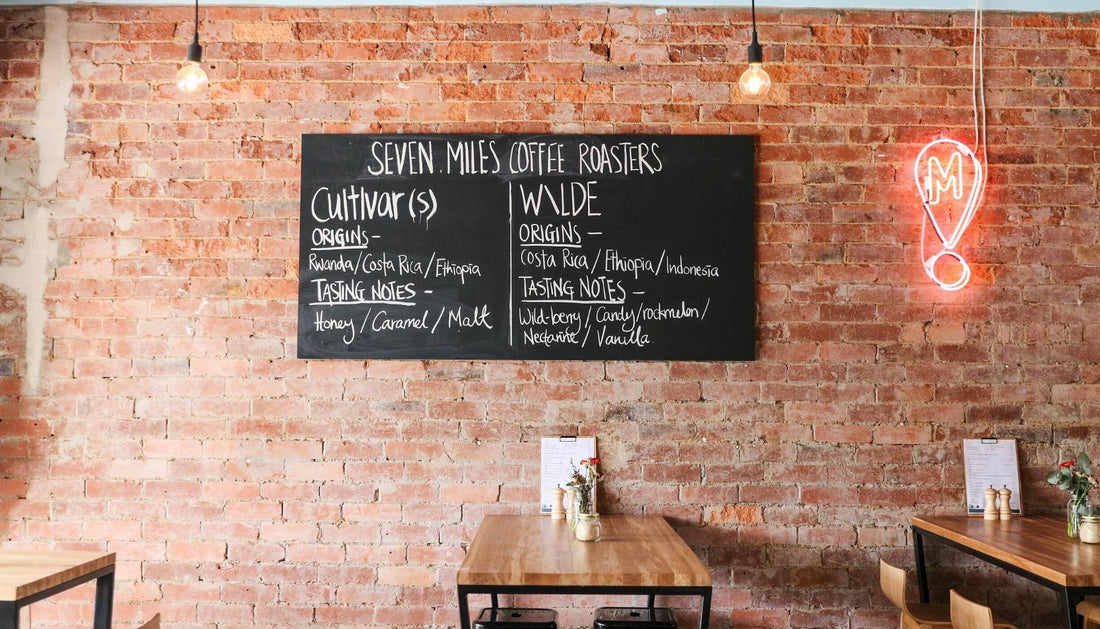 SEVEN MILES COFFEE ROASTERS
Cultivar(s)
ORIGINS-
Rwanda/Costa Rica/Ethiopia
TASTING NOTES -
Honey / Caramel / Malt
WILDE
ORIGINS -
Costa Rica/Ethiopia/Indonesia
TASTING NOTES -
Wild-berry / Candy/rockmelon/
Nectarine/ Vanilla
M